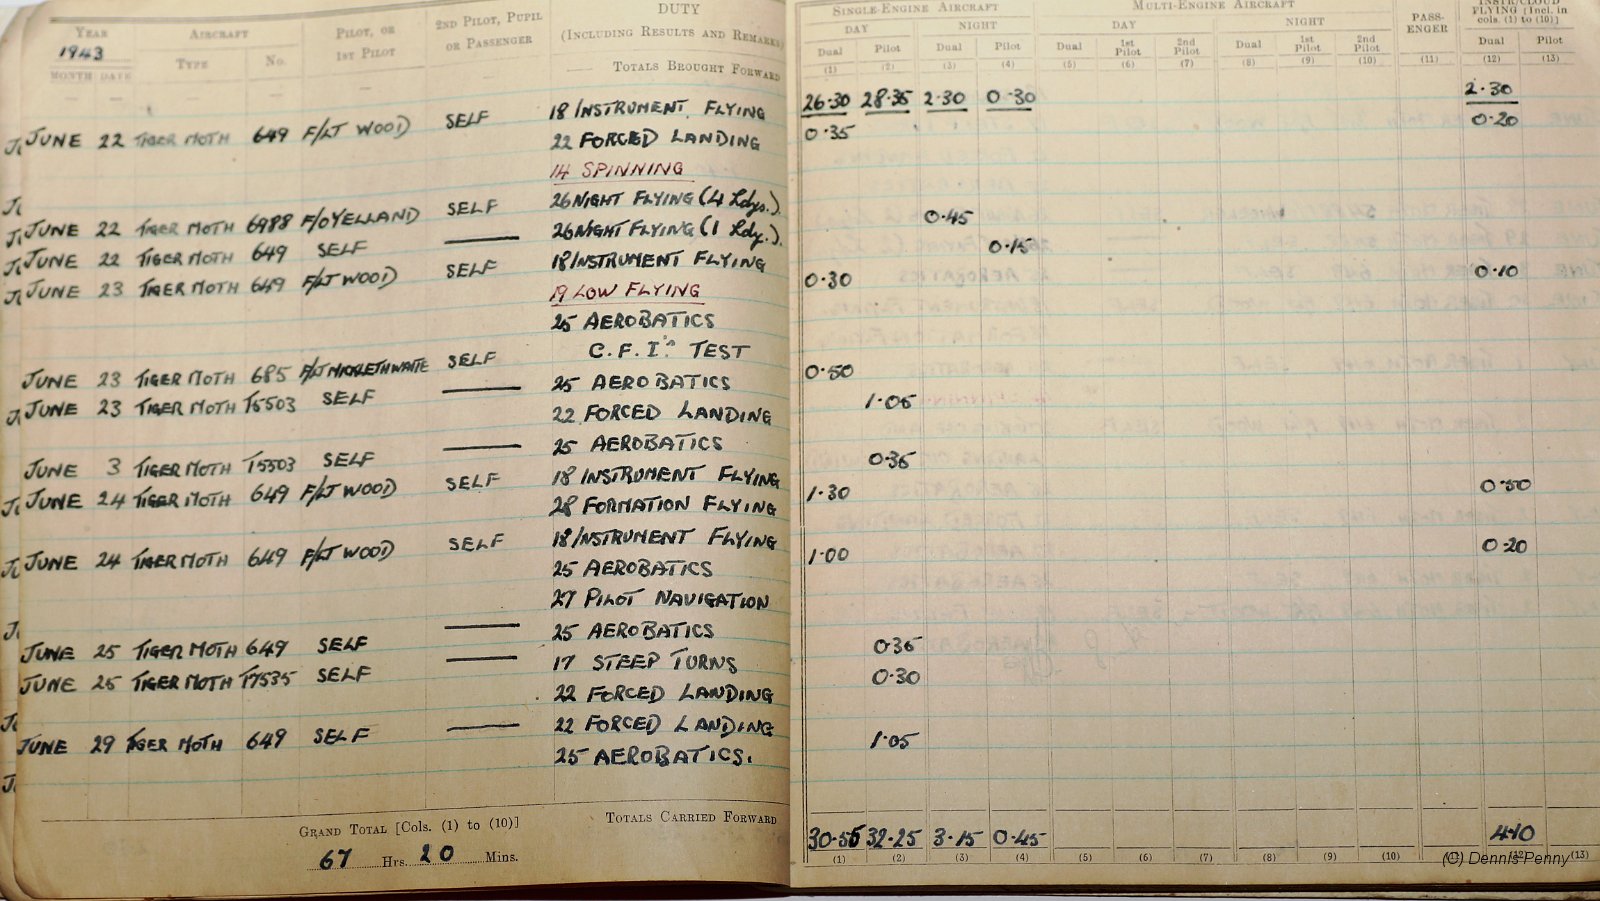 YEAR AIRCRAFT PILOT, OR 1ST PILOT 2ND PILOT, PUPIL OR PASSENGER DUTY (INCLUDING RESULTS AND REMARKS) SINGLE-ENGINE AIRCRAFT MULTI-ENGINE AIRCRAFT PASS-ENGER INSTR/CLOUD FLYING [Incl. in cols. (1) to (10)]
1943 TYPE No. DAY NIGHT DAY NIGHT
MONTH DATE Dual Pilot Dual Pilot Dual 1st Pilot 2nd Pilot Dual 1st Pilot 2nd Pilot Dual Pilot
— — — — — — TOTALS BROUGHT FORWARD (1) (2) (3) (4) (5) (6) (7) (8) (9) (10) (11) (12) (13)
26·30 28·35 2·30 0·30 2·30
JUNE 22 TIGER MOTH 649 F/LT WOOD SELF 18 INSTRUMENT FLYING 0·35 0·20
22 FORCED LANDING
14 SPINNING
JUNE 22 TIGER MOTH 6988 F/O YELLAND SELF 26 NIGHT FLYING (4 Ldgs.) 0·45
JUNE 22 TIGER MOTH 649 SELF —— 26 NIGHT FLYING (1 Ldg.) 0·15
JUNE 23 TIGER MOTH 649 F/LT WOOD SELF 18 INSTRUMENT FLYING 0·30 0·10
19 LOW FLYING
25 AEROBATICS
JUNE 23 TIGER MOTH 685 F/LT MICKLETHWAITE SELF C.F.I's TEST 0·50
JUNE 23 TIGER MOTH T5503 SELF —— 25 AEROBATICS 1·05
22 FORCED LANDING
JUNE 3 TIGER MOTH T5503 SELF —— 25 AEROBATICS 0·35
JUNE 24 TIGER MOTH 649 F/LT WOOD SELF 18 INSTRUMENT FLYING 1·30 0·50
28 FORMATION FLYING
JUNE 24 TIGER MOTH 649 F/LT WOOD SELF 18 INSTRUMENT FLYING 1·00 0·20
25 AEROBATICS
27 PILOT NAVIGATION
JUNE 25 TIGER MOTH 649 SELF —— 25 AEROBATICS 0·35
JUNE 25 TIGER MOTH T7535 SELF —— 17 STEEP TURNS 0·30
22 FORCED LANDING
JUNE 29 TIGER MOTH 649 SELF —— 22 FORCED LANDING 1·05
25 AEROBATICS.
GRAND TOTAL [Cols. (1) to (10)] TOTALS CARRIED FORWARD 30·55 32·25 3·15 0·45 4·10
67 Hrs. 20 Mins. (1) (2) (3) (4) (5) (6) (7) (8) (9) (10) (11) (12) (13)
(C) Dennis Penny